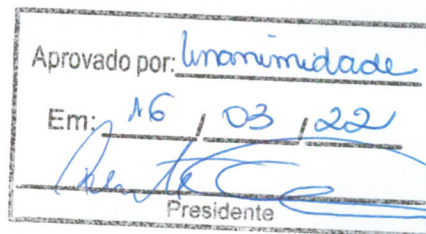 Aprovado por: Unanimidade
Em: 16 / 03 / 22
Presidente